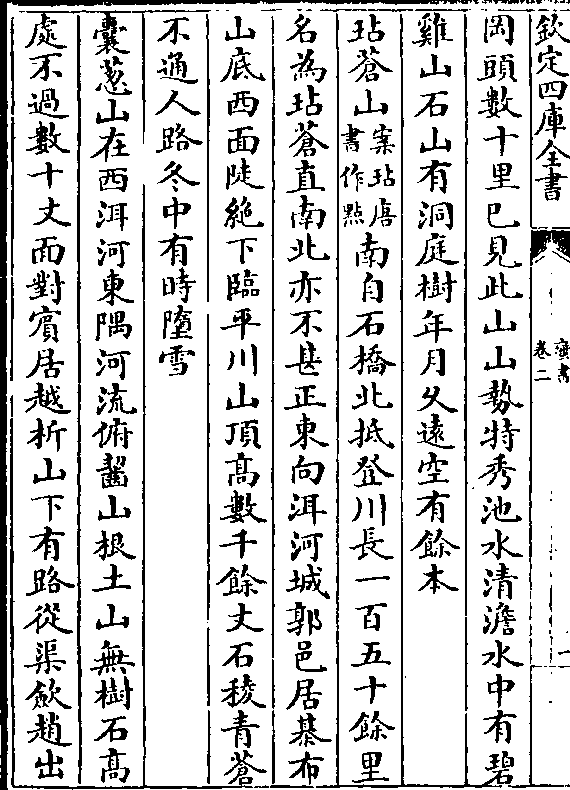 欽定四庫全書
蠻書
卷二
岡頭數十里已見此山山勢特秀池水清澹水中有碧
雞山石山有洞庭樹年月久遠空有餘本
玷蒼山案玷唐書作點南自石橋北抵登川長一百五十餘里
名為玷蒼直南北亦不甚正東向洱河城郭邑居棊布
山底西面陡絶下臨平川山頂高數千餘丈石稜青蒼
不通人路冬中有時墮雪
囊葱山在西洱河東隅河流俯齧山根土山無樹石高
處不過數十丈面對賔居越析山下有路從渠歛趙出